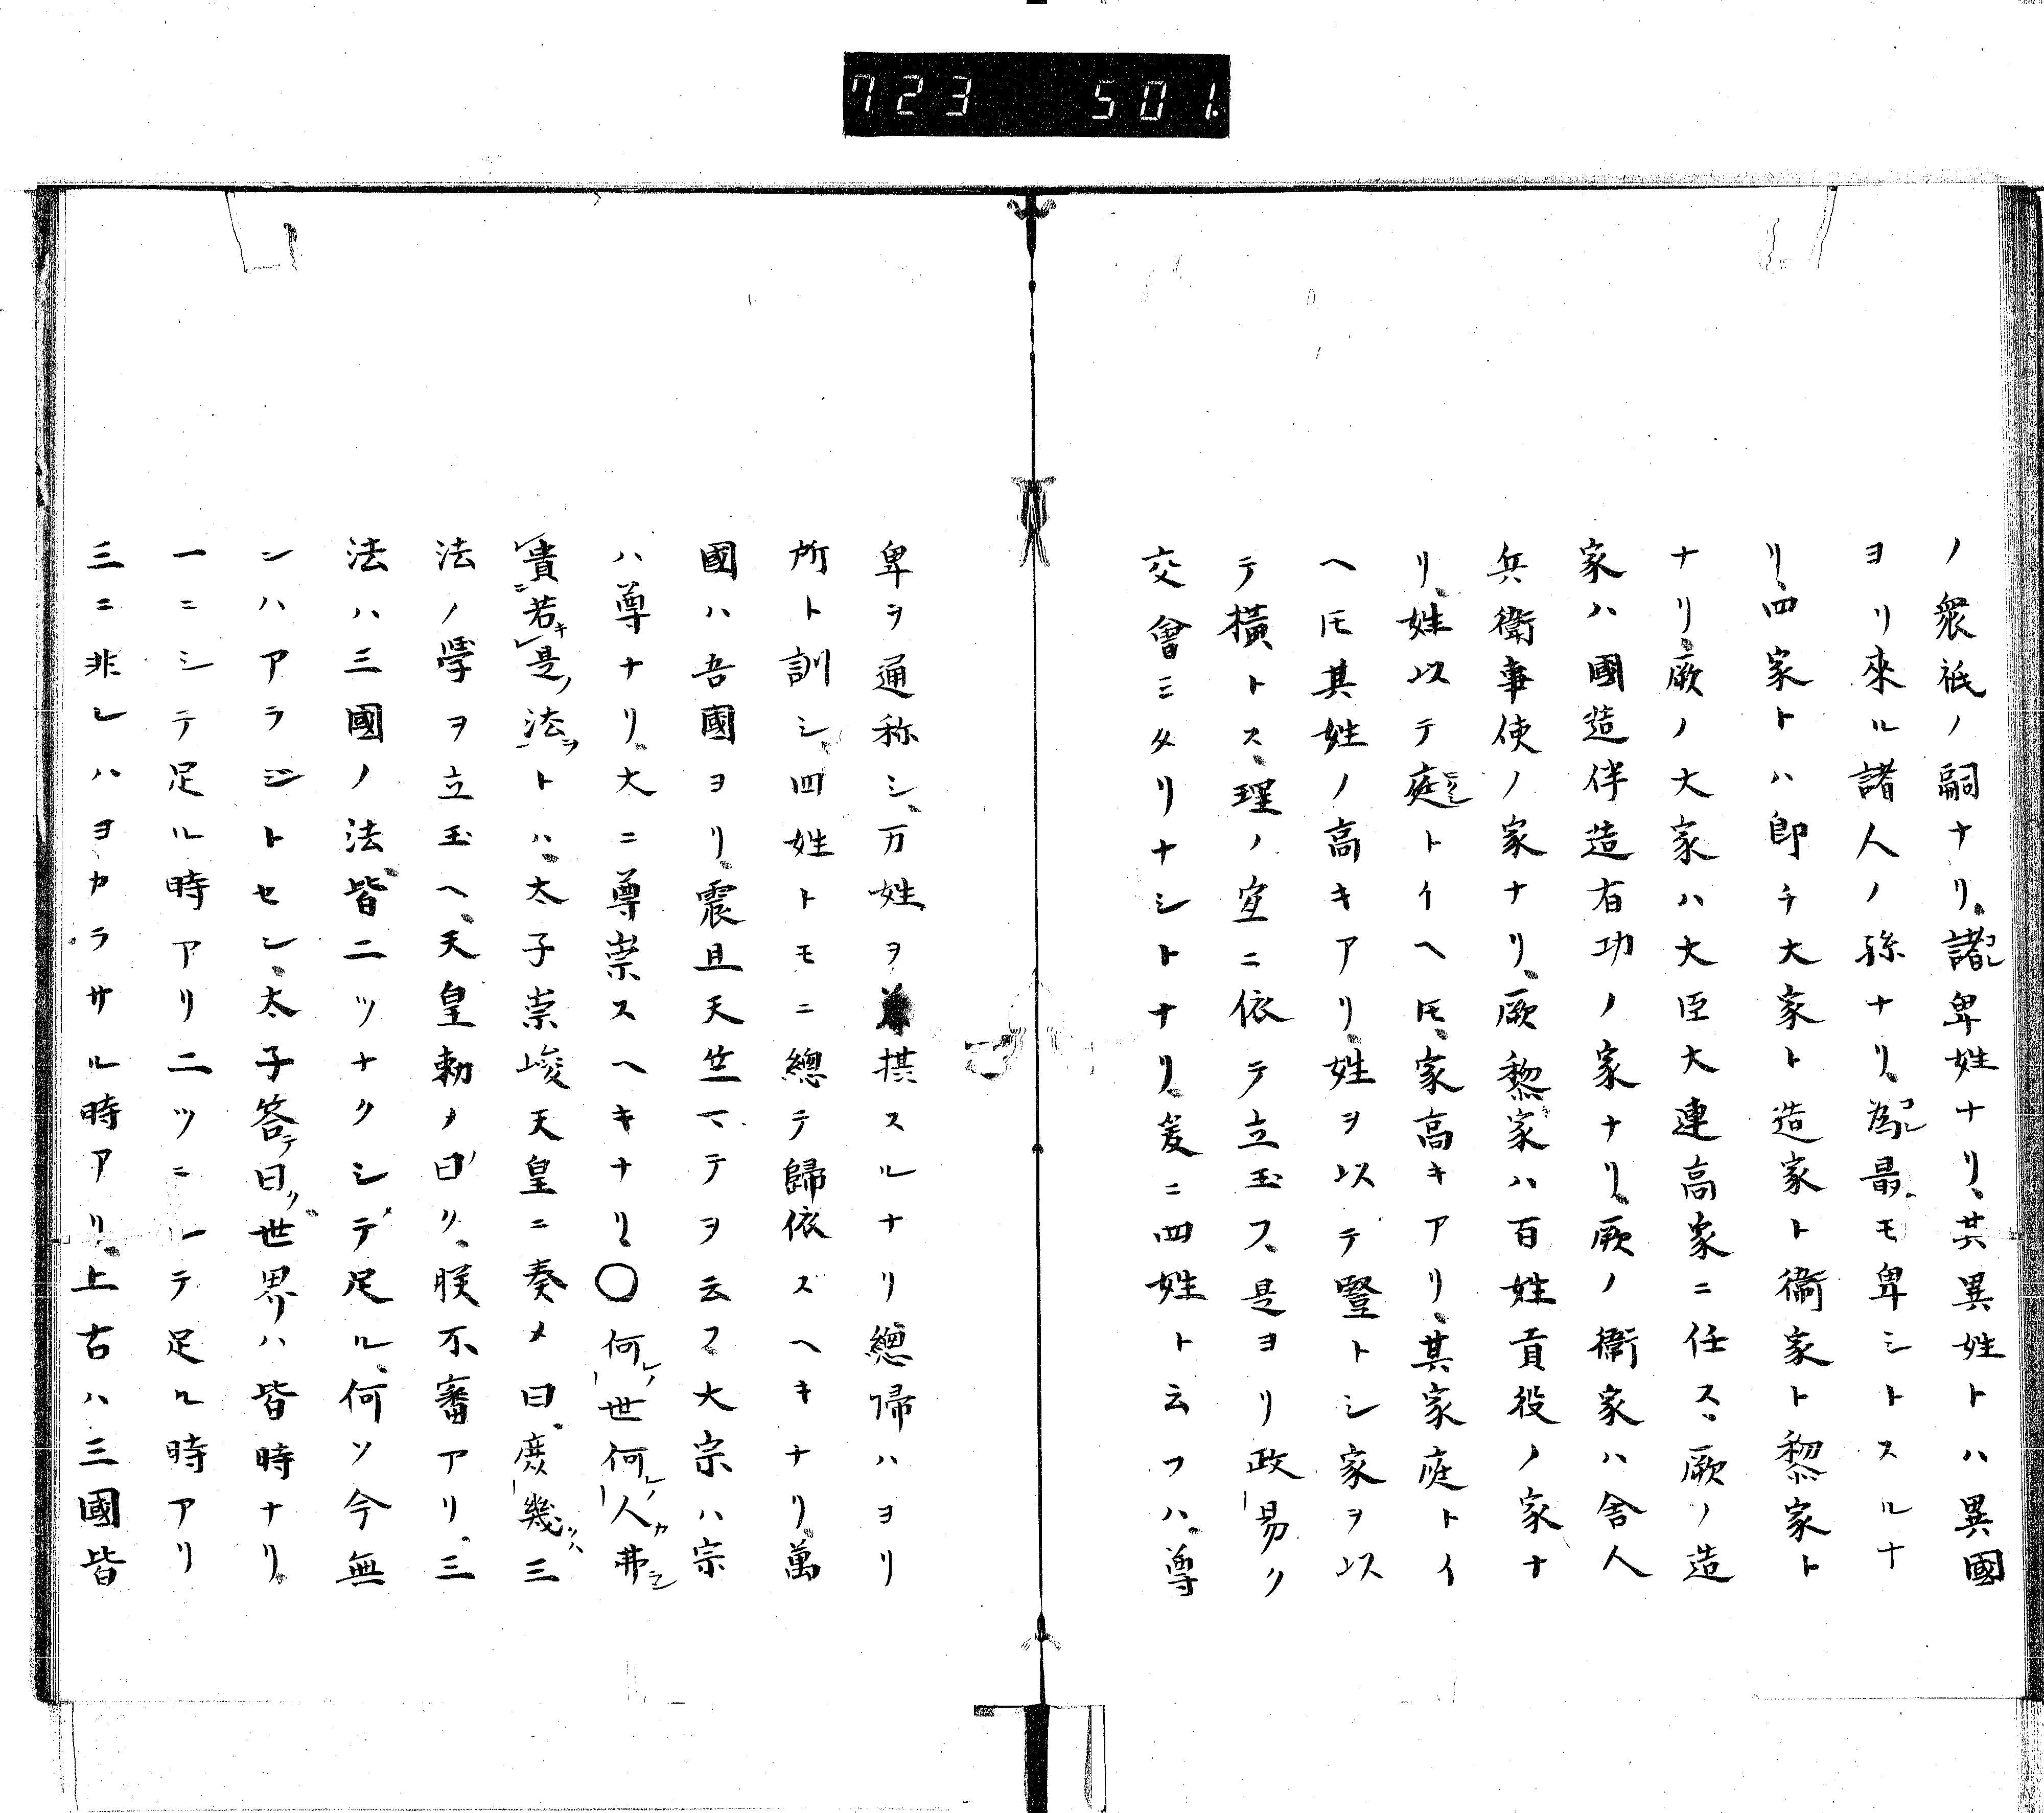 723 501.
ノ衆祇ノ嗣ナリ、諸卑姓ナリ、其異姓トハ異國
ヨリ來ル諸人ノ孫ナリ、為最モ卑シトスルナ
リ、四家トハ即チ大家ト造家ト衞家ト黎家ト
ナリ、厥ノ大家ハ大臣大連高家ニ任ス、厥ノ造
家ハ國造伴造有功ノ家ナリ、厥ノ衞家ハ舎人
兵衞事使ノ家ナリ、厥黎家ハ百姓貢役ノ家ナ
リ、姓以テ庭トイヘ𪜈、家高キアリ、其家庭トイ
ヘ𪜈其姓ノ高キアリ、姓ヲ以テ豎トシ家ヲ以
テ横トス、理ノ宜ニ依テ立玉フ、是ヨリ政易ク
交會ミタリナシトナリ、爰ニ四姓ト云フハ、尊
卑ヲ通称シ、万姓ヲ摸スルナリ總帰ハヨリ
所ト訓シ、四姓トモニ總テ歸依スヘキナリ、萬
國ハ吾國ヨリ、震旦天竺マテヲ云フ大宗ハ宗
ハ尊ナリ、大ニ尊崇スヘキナリ、〇何レノ世何レノ人カ弗シ
貴ニ若キ是ノ法ヲトハ、太子崇峻天皇ニ奏メ曰、庶幾ハ三
法ノ學ヲ立玉ヘ、天皇勅ノ曰ク、朕不審アリ、三
法ハ三國ノ法、皆二ツナクシテ足ル、何ソ今無
ンハアラジトセン、太子答テ曰ク、世界ハ皆時ナリ、
一ニシテ足ル時アリ二ツニシテ足ル時アリ
三ニ非レハヨカラサル時アリ、上古ハ三國皆